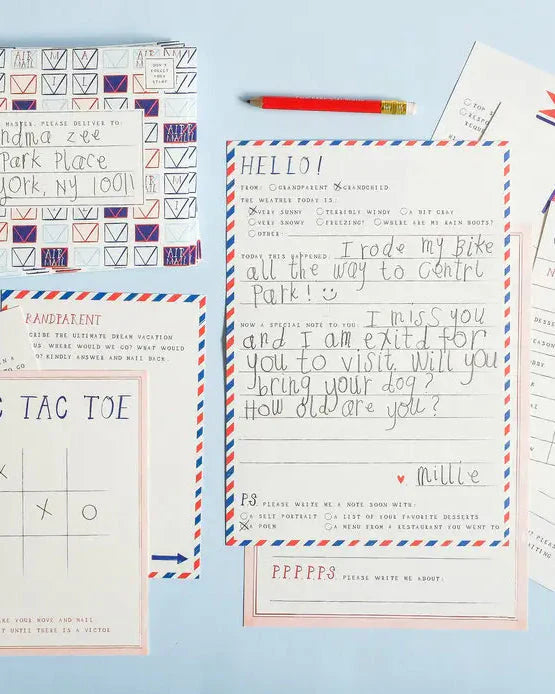 DON'T
FORGET
YOUR
STAMP
AIR MAIL
MASTER, PLEASE DELIVER TO:
ndma zee
Park Place
york, NY 10011
HELLO!
FROM: GRANDPARENT GRANDCHILD
THE WEATHER TODAY IS:
VERY SUNNY TERRIBLY WINDY A BIT GRAY
VERY SNOWY FREEZING! WHERE ARE MY RAIN BOOTS?
OTHER:
TODAY THIS HAPPENED I rode my bike
all the way to Centrl
Park!
NOW A SPECIAL NOTE TO YOU: I miss you
and I am exitd for
you to visit. Will you
bring your dog?
How old are you?
Millie
P.S. PLEASE WRITE ME A NOTE SOON WITH:
A SELF PORTRAIT A LIST OF YOUR FAVORITE DESSERTS
A POEM A MENU FROM A RESTAURANT YOU WENT TO
P.P.P.P.S. PLEASE WRITE ME ABOUT:
RANDPARENT
CRIBE THE ULTIMATE DREAM VACATION
US. WHERE WOULD WE GO? WHAT WOULD
O? KINDLY ANSWER AND MAIL BACK.
TO GO
C TAC TOE
X
X O
AKE YOUR MOVE AND MAIL
T UNTIL THERE IS A VICTOR